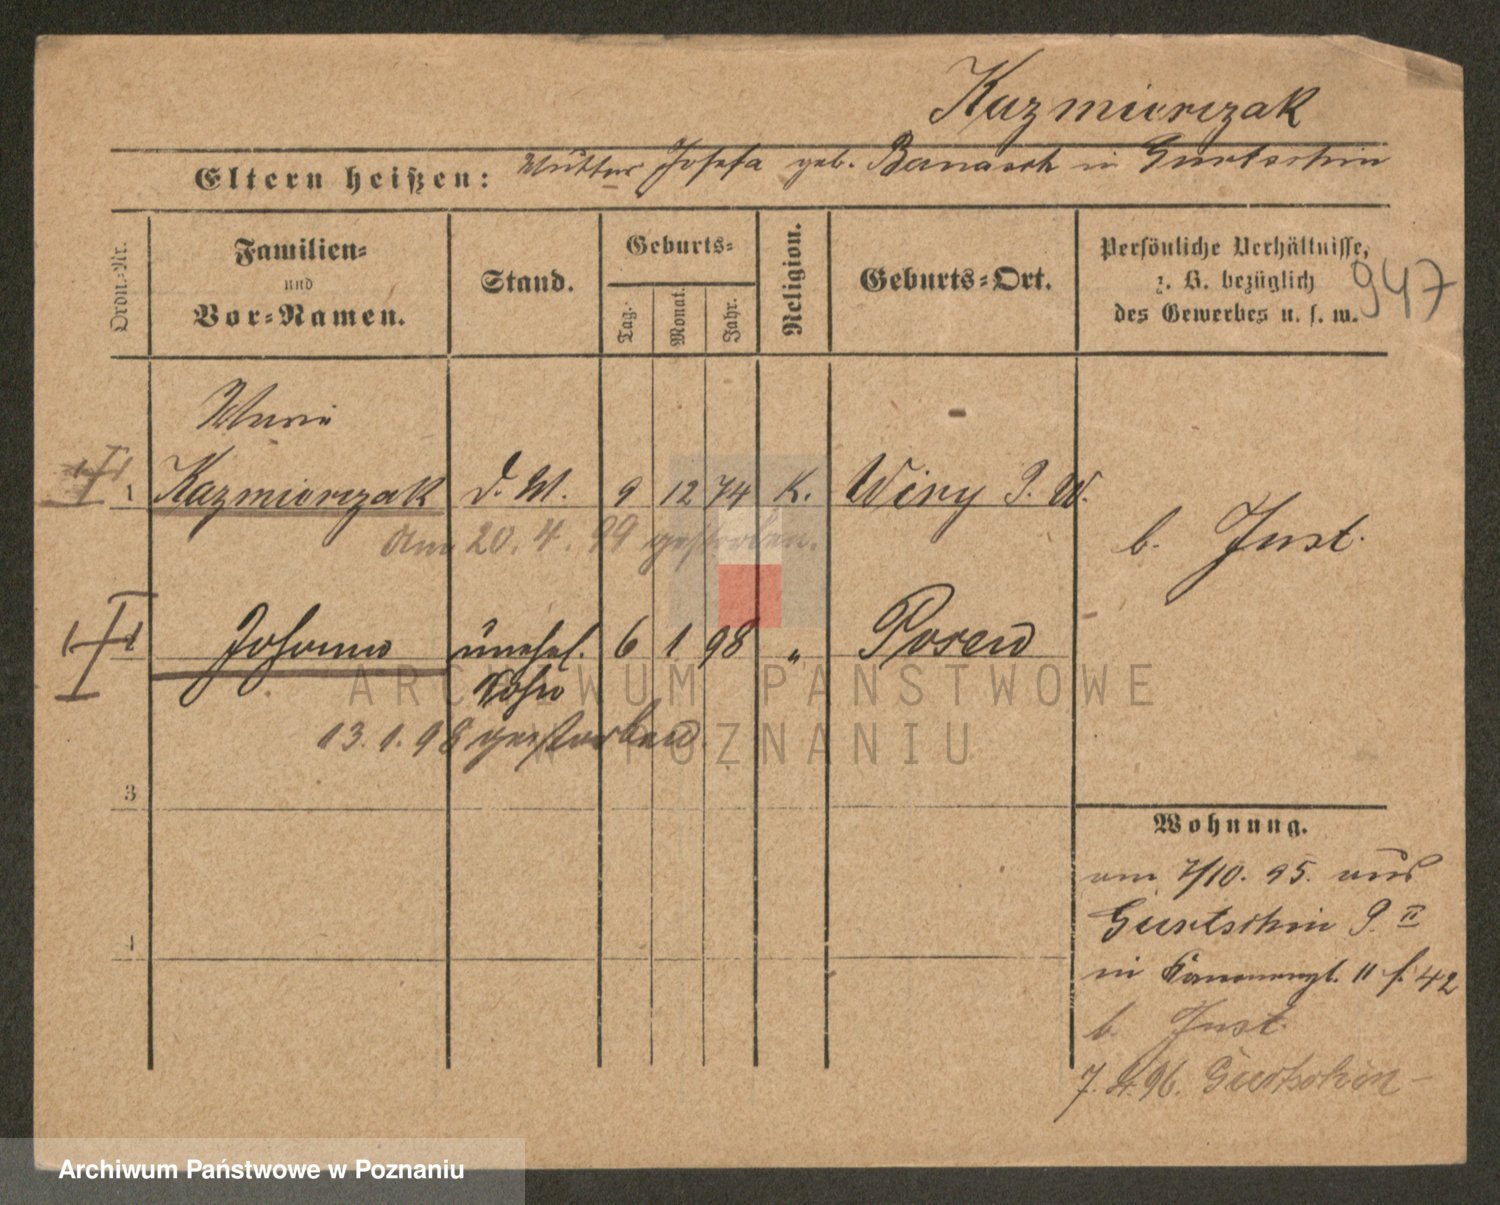 Kazmierczak
Eltern heißen: Mutter Josefa geb. Banasch in Gurtschin
Ordn.-Nr.
Familien-
und
Vor-Namen.
Stand.
Geburts-
Tag.
Monat.
Jahr.
Religion.
Geburts-Ort.
Persönliche Verhältnisse,
z. B. bezüglich
des Gewerbes u. s. w.
947
Marie
1 Kazmierczak d. M. 9 12 74 K. Winy P. W.
am 20. 4. 99 gestorben.
b. Just.
Johann unehel. 6 1 98 " Posen
Sohn
13. 1. 98 gestorben.
3
4
Wohnung.
am 7/10. 95. aus
Gurtschin P. II
in 11 f. 42
b. Just.
7. 4. 96. Gurtschin
ARCHIWUM PAŃSTWOWE
W POZNANIU
Archiwum Państwowe w Poznaniu